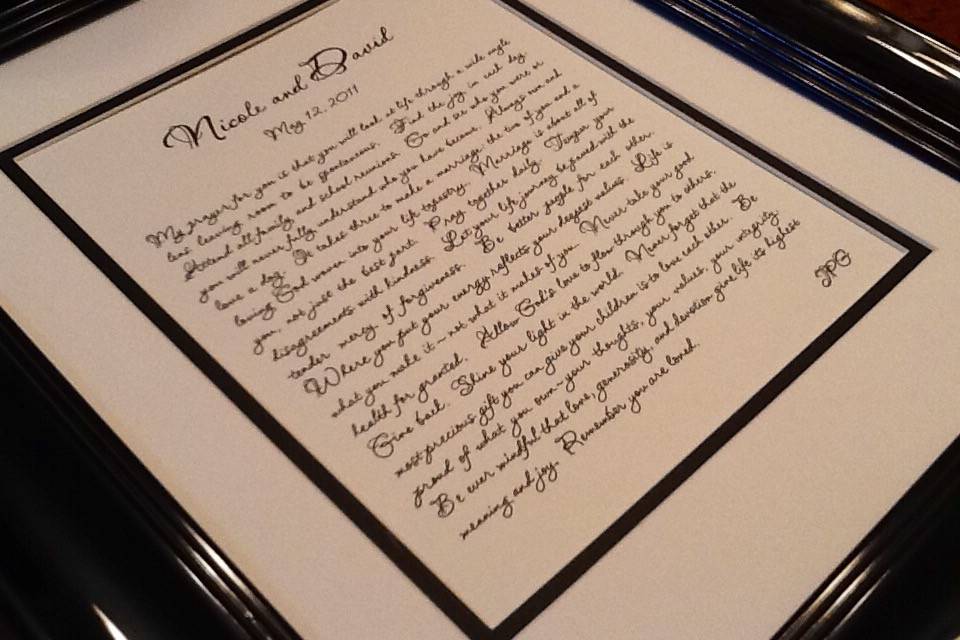 Nicole and David
May 12, 2011
My prayer for you is that you will look at life through a wide angle
lens leaving room to be spontaneous. Find the joy in each day.
Attend all family and school reunions. Go and see who you were or
you will never fully understand who you have become. Always run and
love a dog. It takes three to make a marriage: the two of you and a
loving God woven into your life tapestry. Marriage is about all of
you, not just the best part. Pray together daily. Temper your
disagreements with kindness. Let your life journey be paved with the
tender mercy of forgiveness. Be better people for each other.
Where you put your energy reflects your deepest values. Life is
what you make it - not what it makes of you. Never take your good
health for granted. Allow God's love to flow through you to others.
Give back. Shine your light in the world. Never forget that the
most precious gift you can give your children is to love each other. Be
proud of what you own - your thoughts, your values, your integrity.
Be ever mindful that love, generosity, and devotion give life its highest
meaning and joy. Remember you are loved.
JPG